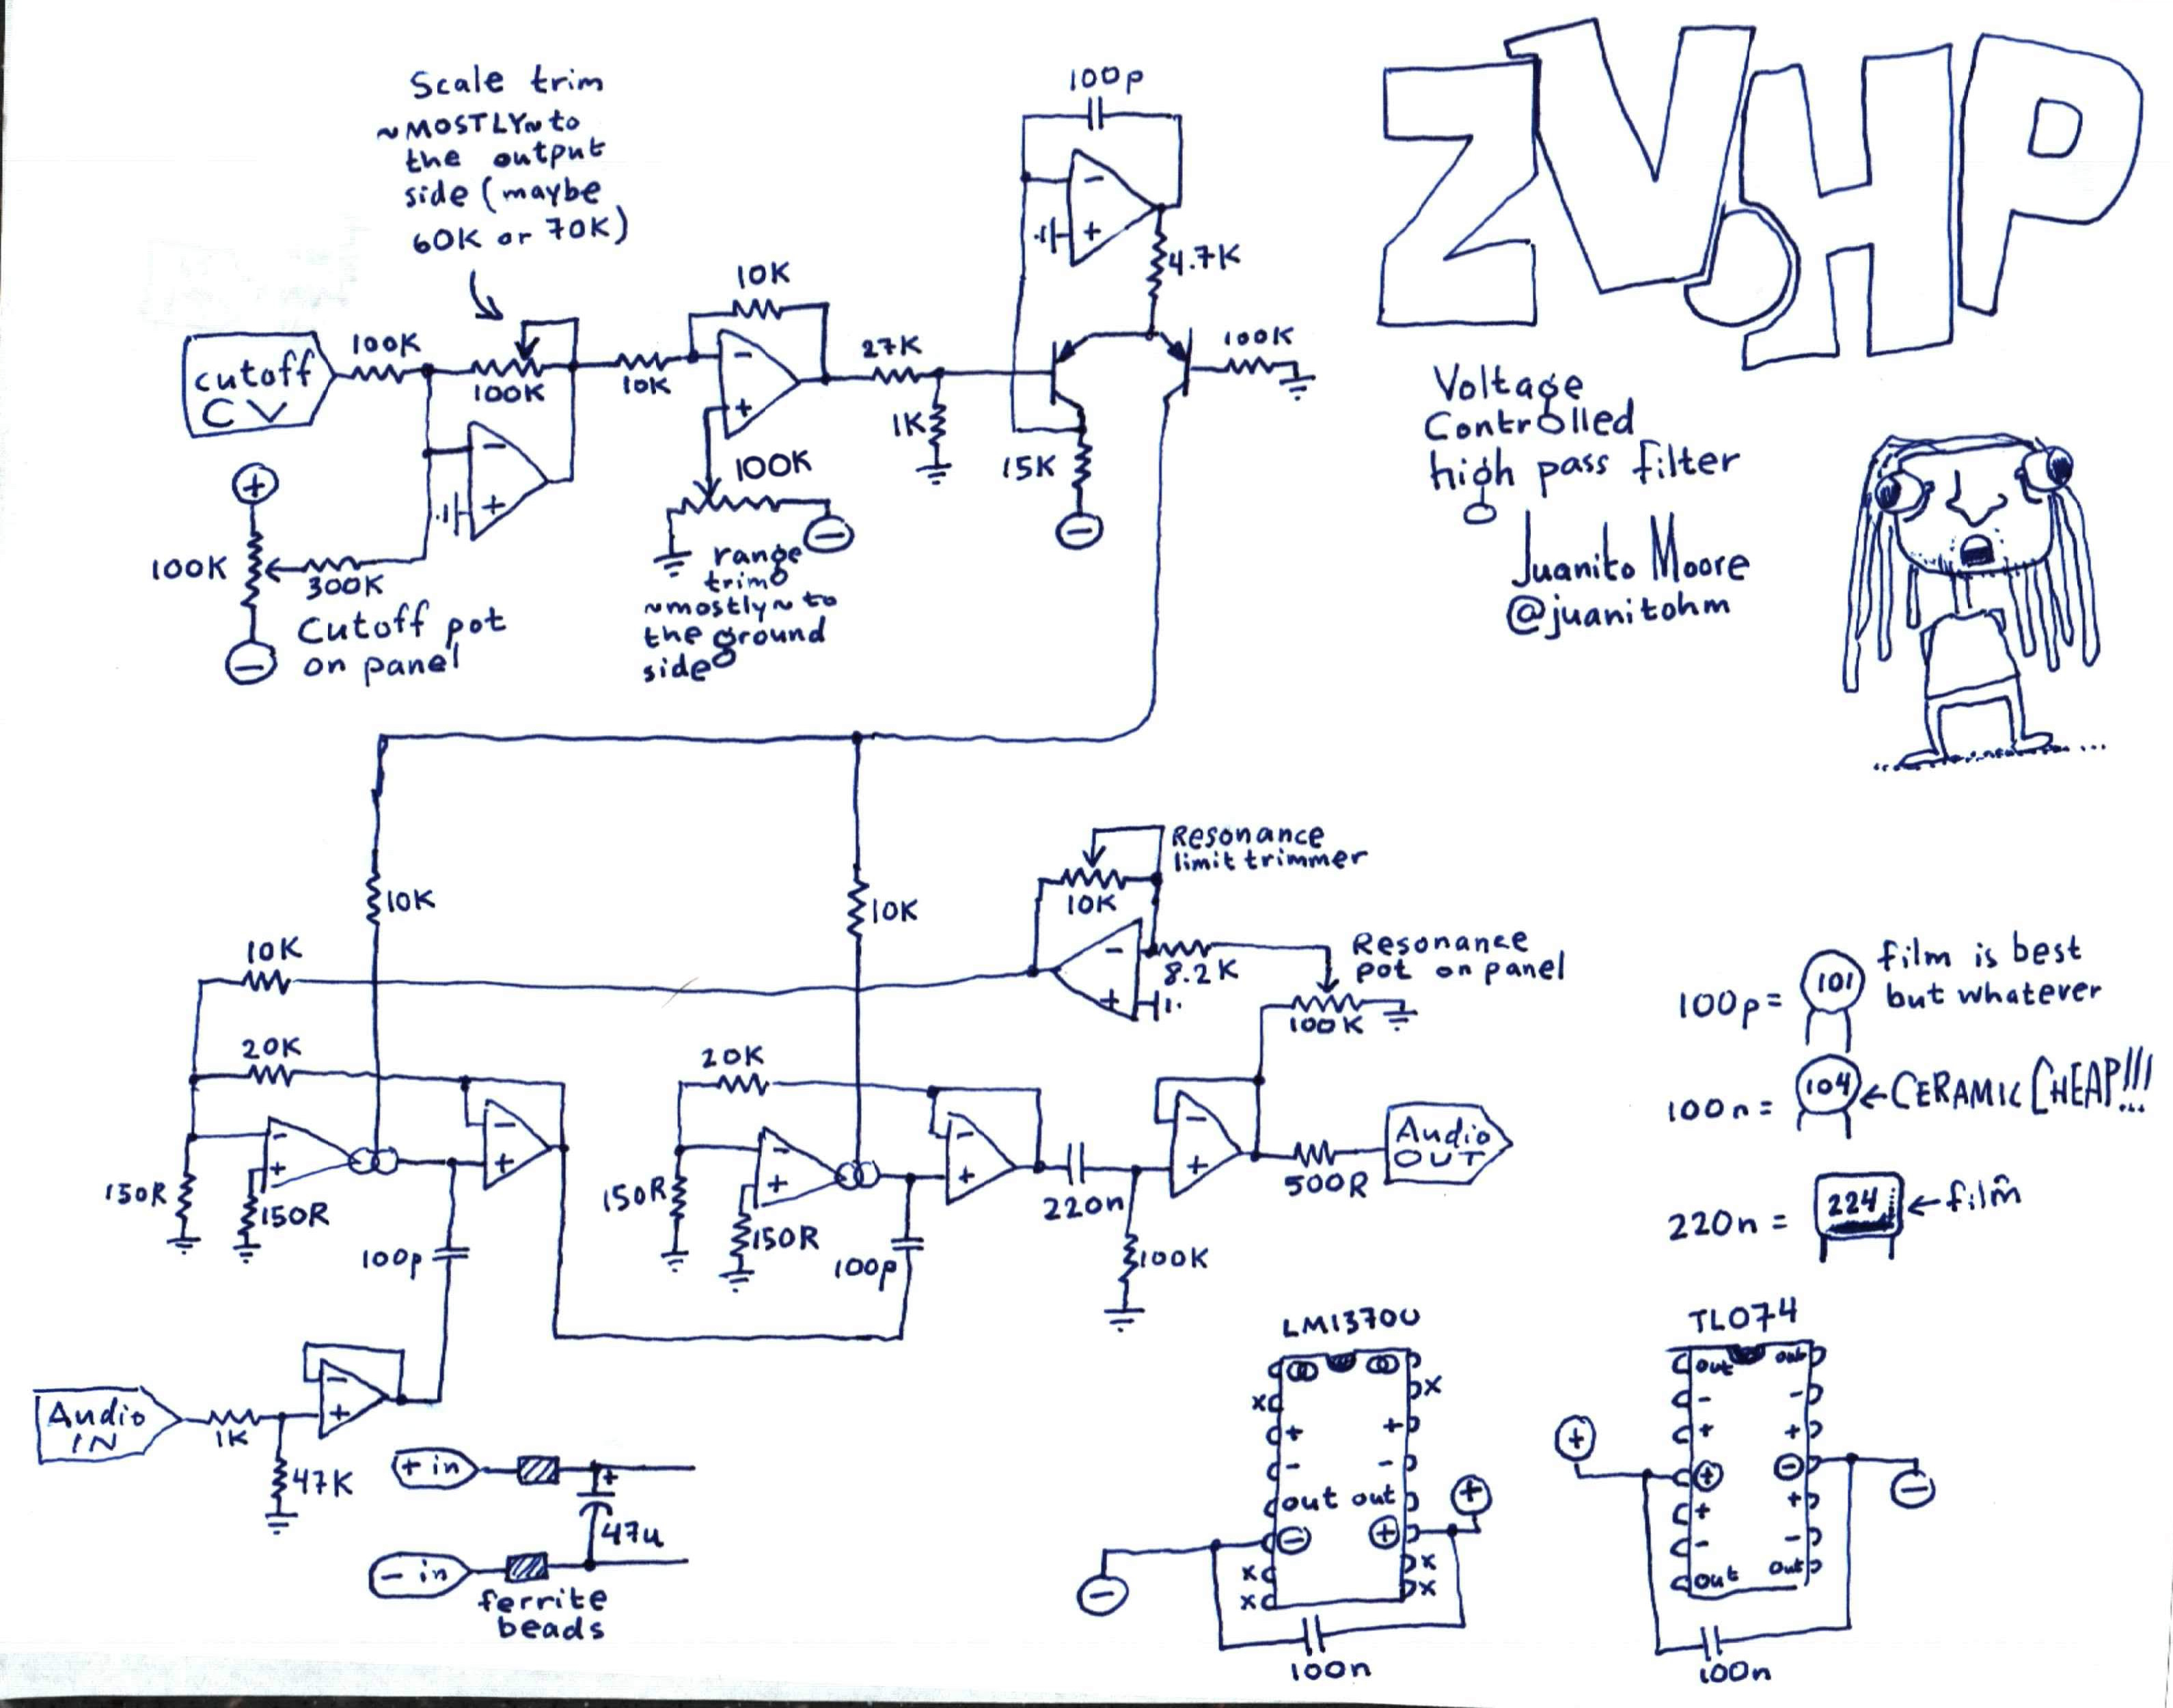 Scale trim
~MOSTLY~ to
the output
side (maybe
60K or 70K)
100p
-
+
4.7K
ZVHP
Voltage
Controlled
high pass filter
Juanito Moore
@juanitohm
cutoff
CV
100K
100K
-
+
10K
10K
-
+
27K
1K
15K
-
100K
+
100K
-
300K
Cutoff pot
on panel
100K
-
range
trim
~mostly~ to
the ground
side
10K
10K
Resonance
limit trimmer
10K
-
+
8.2K
Resonance
pot on panel
100K
10K
20K
-
+
150R
150R
100p
-
+
20K
-
+
150R
150R
100p
-
+
220n
100K
-
+
500R
Audio
OUT
Audio
IN
1K
47K
-
+
+ in
+
47u
- in
ferrite
beads
100p = 101
film is best
but whatever
100n = 104 ← CERAMIC CHEAP!!!
220n = 224 ← film
LM13700
x
x
+
+
-
-
out out
-
+
+
x
x
x
x
-
100n
TL074
out out
-
-
+
+
+
-
+
-
+
+
-
-
out out
100n